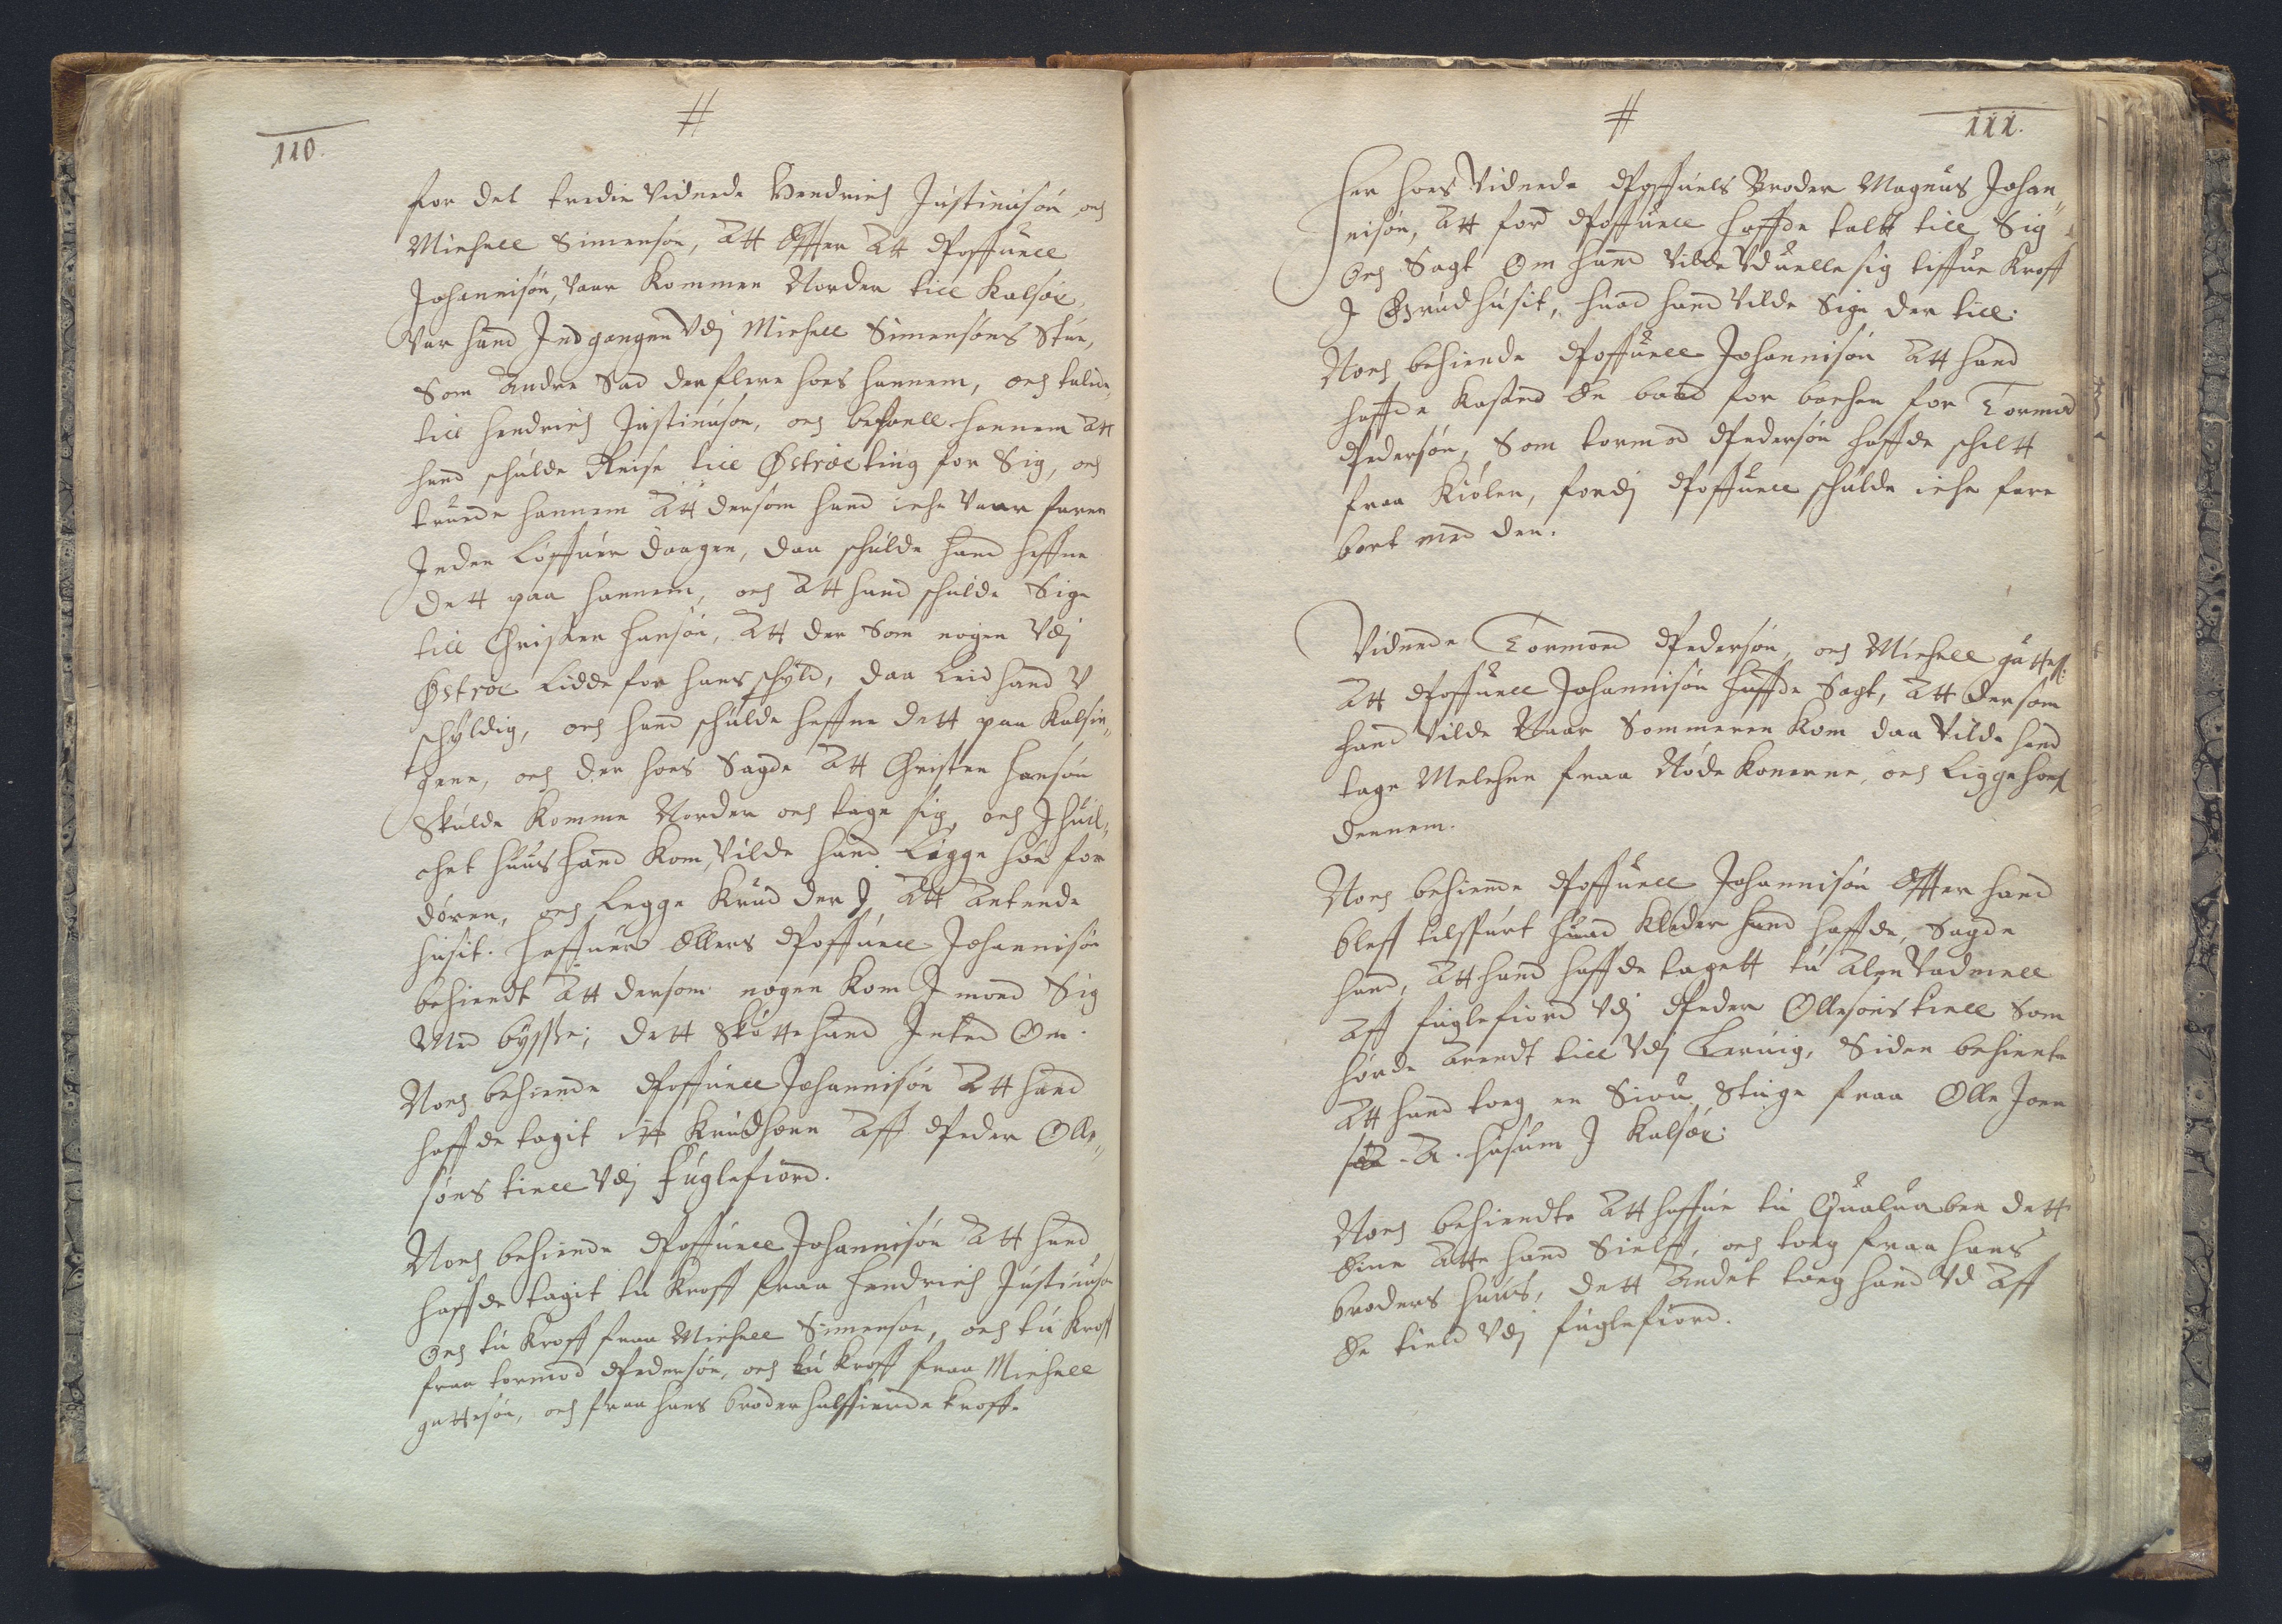 #
110.
for det tredie vidnede Hendrich Justinusøn, och
Michell Simensøn, Att Effter Att Poffuell
Johannisøn, vaar kommen Norden till Kalsøe,
Var hand Indgangen Vdj Michell Simensøns stue,
Som Andre Sad der flere hoes hannem, och talede
till Hendrich Justinusøn, och befoell hannem Att
hand schulde Reise till Østrøe ting for Sig, och
truede hannem Att dersom hand iche vaar faren
Inden Løffuer daagen, daa schulde hand heffne
Dett paa hannem, och Att hand schulde Sige
till Christen Hansøn, Att der Som nogen Vdj
Østrøe Lidde for hans schyld, daa Leid hand V
schyldig, och hand schulde heffne dett paa Kalsin„
gene, och der hoes Sagde Att Christen Hansøn
Skulde komme Norden och tage sig, och J huil„
chet huus hand kom, vilde hand Ligge høe for
døren, och Legge Krud der J, Att Antende
husit. Haffuer Ellers Poffuell Johannisøn
bekiendt Att dersom nogen kom J moed Sig
Med bysße, dett Skøtte hand Intet Om.
Noch bekiende Poffuell Johannisøn Att hand
haffde tagit itt Krudhorn Aff Peder Olle„
søns kiell Vdj Fuglefiord.
Noch bekiende Poffuell Johannisøn Att hand
haffde tagit tu Kroff fraa Hendrich Justinusøn
Och tu Kroff fraa Michell Simensøn, och tu Kroff
fraa tormod Pedersøn, och tu Kroff fraa Michell
guttesøn, och fraa hans broder halffierde kroff.
#
111.
Her hoes Vidnede Poffuels Broder Magnus Johan„
nisøn, Att ford Poffuell haffde taltt till Sig
Och Sagt Om hand vilde Vduelle sig tiffue Kroff
J Brudhusit, huad hand vilde Sige der till.
Noch bekiende Poffuell Johannisøn Att hand
haffde kasted En baad for bachen for Tormod
Pedersøn, Som tormod Pedersøn haffde schiltt
fraa Kiølen, fordj Poffuell schulde iche fare
bort med den.
Vidnede Tormoed Pedersøn, och Michell guttes:
Att Poffuell Johannisøn haffde Sagt, Att dersom
hand vilde Naar Sommeren kom daa vilde hand
tage Melchen fraa Nøde konerne, och Ligge hoes
dennem.
Noch bekiende Poffuell Johannisøn Effter hand
bleff tilspurt huad klæder hand haffde, Sagde
hand, Att hand haffde tagett tu Alen Vadmell
Aff fuglefiord Vdj Peder Ollesøns kiell Som
hørde Arendt till Vdj Leruig, Siden bekiente
Att hand toeg en Siou Stuge fraa Olle Joen
søn A. husum J Kalsøe:
Noch bekiendte Att haffue tu Qualuaben dett
Eine Atte hand Sielff, och toeg fraa hans
broders huus, dett Andet toeg hand Vd Aff
En kield Vdj fuglefiord.